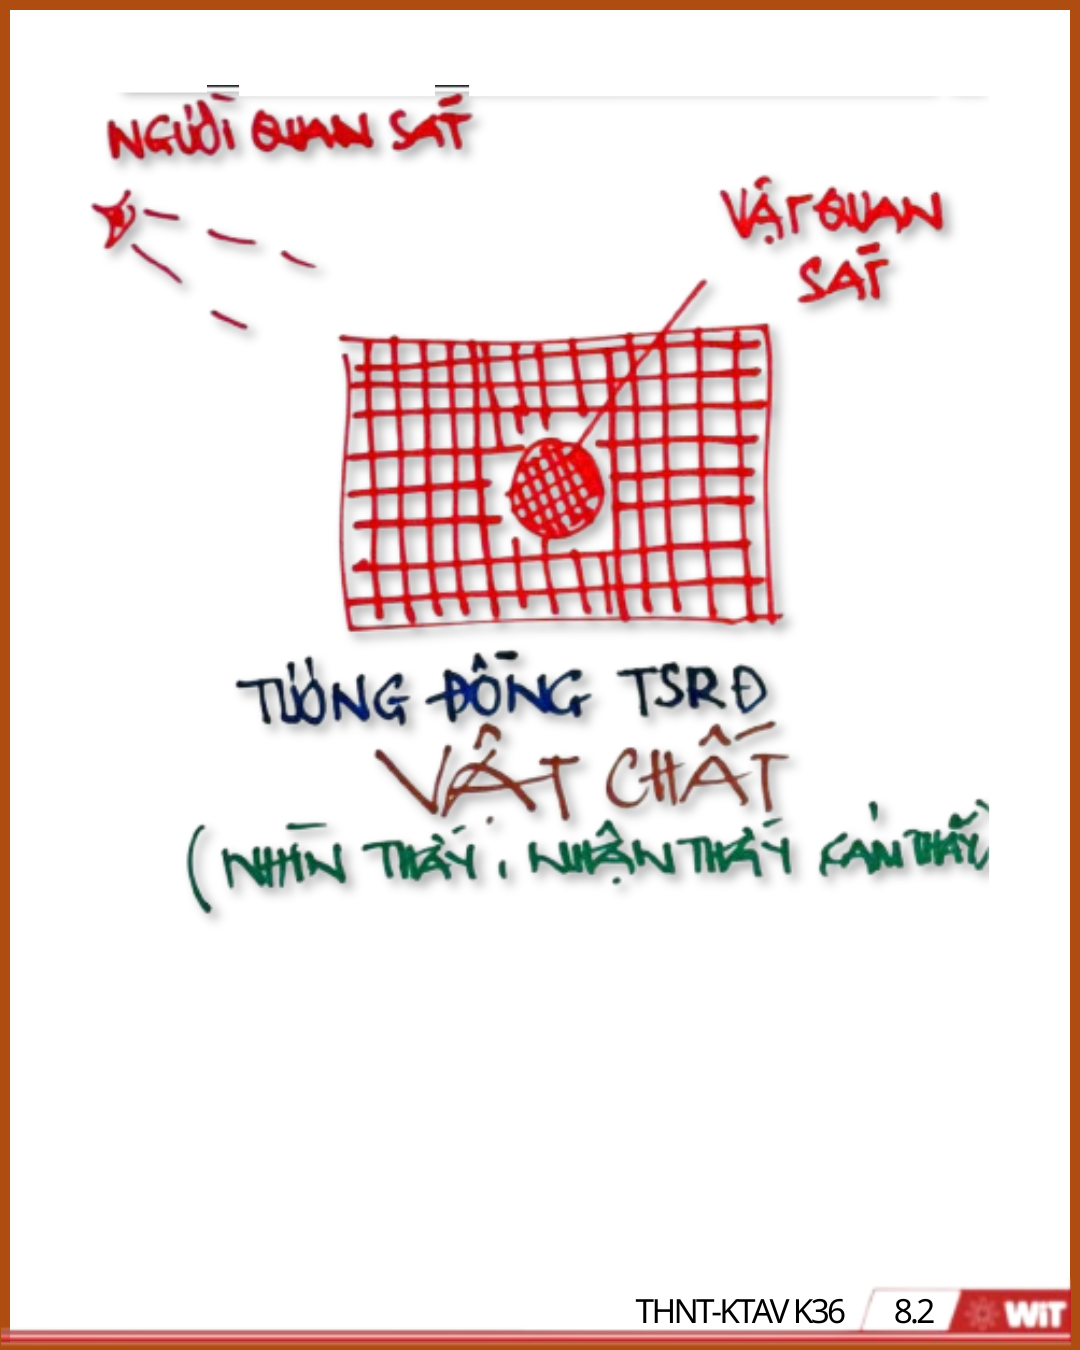 NGƯỜI QUAN SÁT
VẬT QUAN
SÁT
TƯƠNG ĐỒNG TSRĐ
VẬT CHẤT
(NHÌN THẤY, NHẬN THẤY CẢM THẤY)
THNT-KTAV K36
8.2
WiT